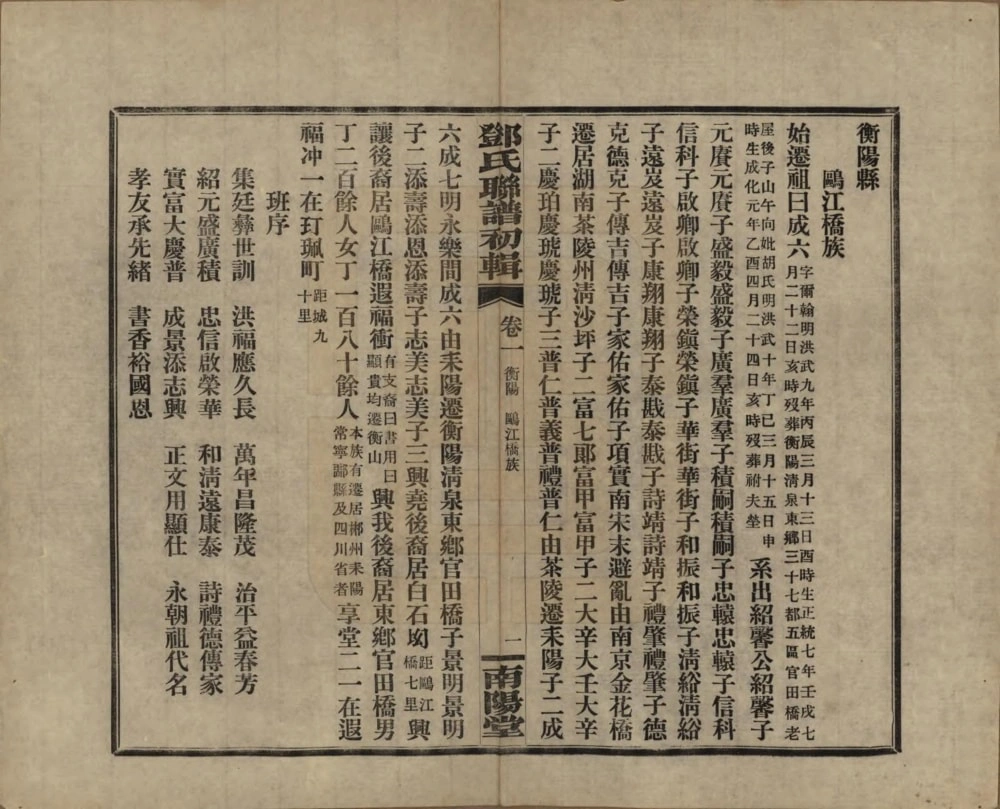 衡陽縣
鷗江橋族
始遷祖曰成六字爾翰明洪武九年丙辰三月十三日酉時生正統七年壬戌七
月二十二日亥時歿葬衡陽清泉東鄉三十七都五區官田橋老
屋後子山午向妣胡氏明洪武十年丁巳三月十五日申
時生成化元年乙酉四月二十四日亥時歿葬祔夫塋系出紹馨公紹馨子
元賡元賡子盛毅盛毅子廣羣廣羣子積嗣積嗣子忠轅忠轅子信科
信科子啟卿啟卿子榮鎭榮鎭子華街華街子和振和振子淸綌淸綌
子遠岌遠岌子康翔康翔子泰戡泰戡子詩靖詩靖子禮肇禮肇子德
克德克子傳吉傳吉子家佑家佑子項實南宋末避亂由南京金花橋
遷居湖南茶陵州淸沙坪子二富七郞富甲富甲子二大辛大壬大辛
子二慶珀慶琥慶琥子三普仁普義普禮普仁由茶陵遷耒陽子二成
鄧氏聯譜初輯
卷一
衡陽 鷗江橋族
一
南陽堂
六成七明永樂間成六由耒陽遷衡陽淸泉東鄉官田橋子景明景明
子二添壽添恩添壽子志美志美子三興堯後裔居白石㘭距鷗江
橋七里興
讓後裔居鷗江橋遐福衝有支裔曰書用曰
顯貴均遷衡山興我後裔居東鄉官田橋男
丁二百餘人女丁一百八十餘人本族有遷居郴州耒陽
常寧酃縣及四川省者享堂二一在遐
福冲一在玎珮町距城九
十里
班序
集廷彝世訓 洪福應久長 萬年昌隆茂 治平益春芳
紹元盛廣積 忠信啟榮華 和淸遠康泰 詩禮德傳家
實富大慶普 成景添志興 正文用顯仕 永朝祖代名
孝友承先緒 書香裕國恩